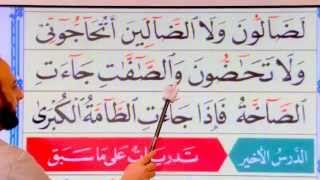 لَضَآلُّونَ وَلَا الضَّآلِّينَ أَتُحَآجُّوٓنِّي
وَلَا تَحَٰٓضُّونَ وَالصَّٰٓفَّٰتِ جَآءَتِ
الصَّآخَّةُ فَإِذَا جَآءَتِ الطَّآمَّةُ الْكُبْرَىٰ
الدَّرْسُ الْأَخِير تَدْرِيبَاتٌ عَلَى مَا سَبَقَ